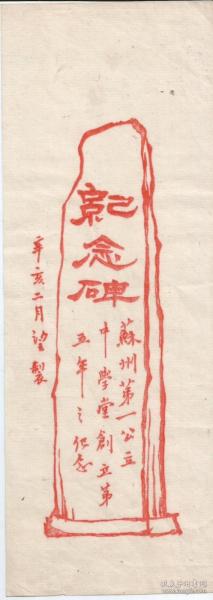 紀念碑
蘇州第一公立
中學堂創立第
五年之紀念
辛亥二月望製